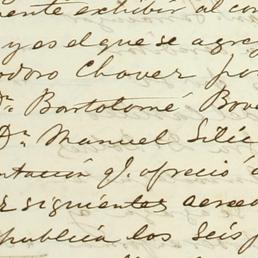 mente exhibir al con
y es el que se agreg
odoro Chavez por
Dn Bartolomé Bove
Dn Manuel Silic
ntación qe. ofreció a
siguientes acreed
epública los Seis p